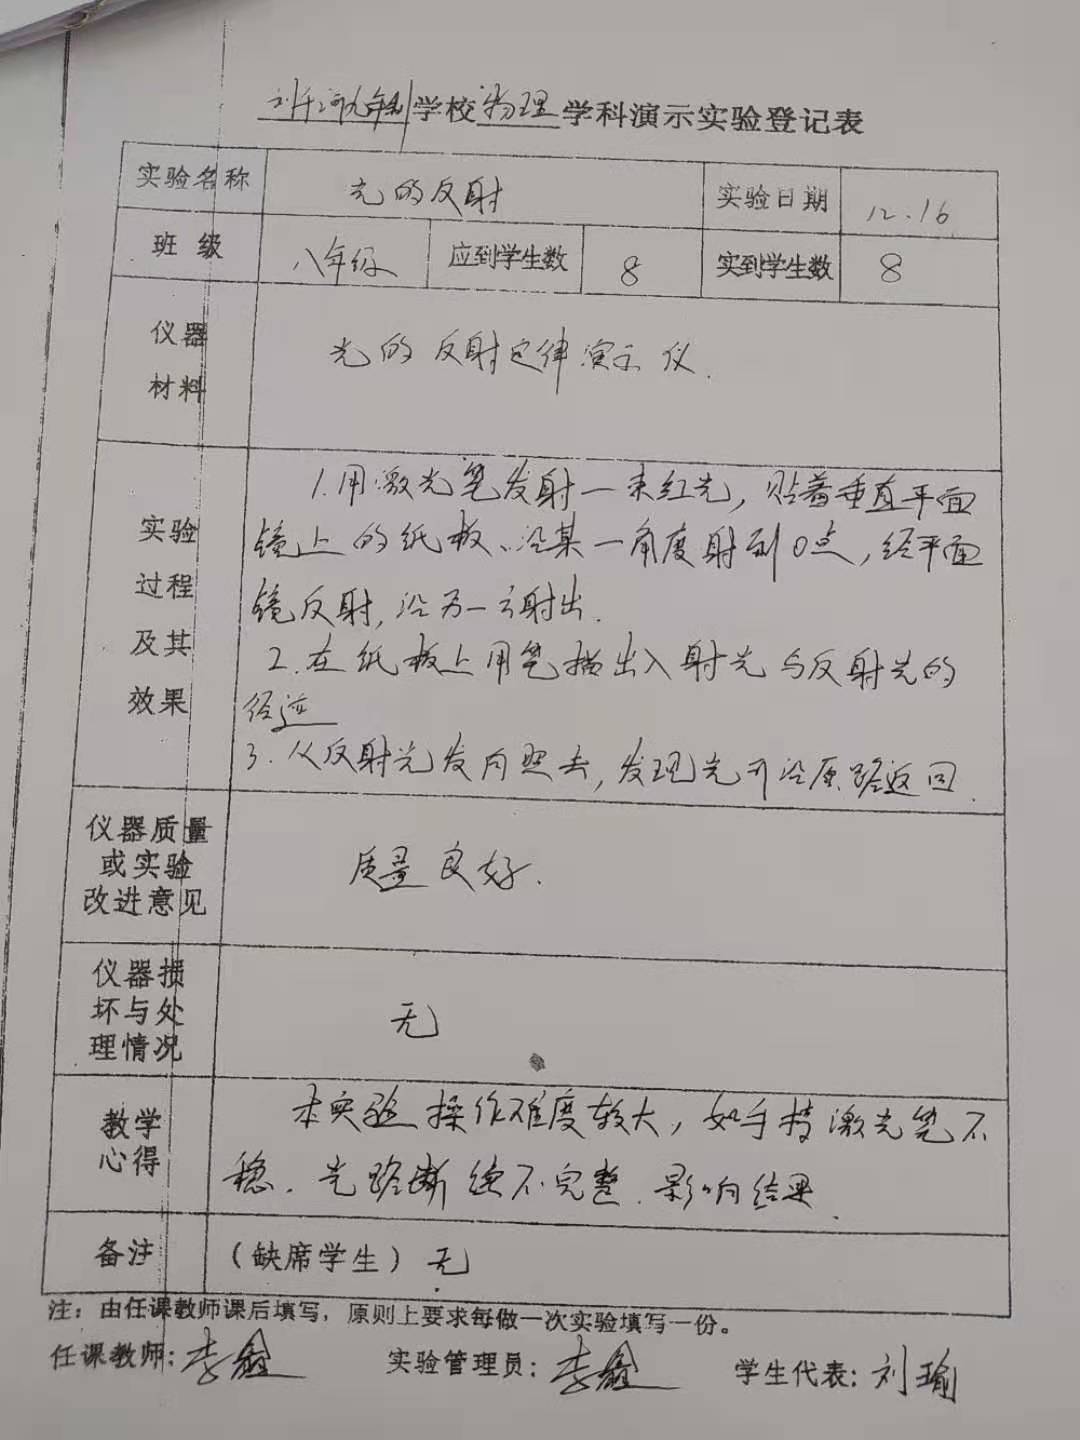 学校物理学科演示实验登记表
实验名称 光的反射 实验日期 12.16
班级 八年级 应到学生数 8 实到学生数 8
仪器
材料
光的反射定律演示仪.
实验
过程
及其
效果
1.用激光笔发射一束红光，贴着垂直平面
镜上的纸板、沿某一角度射到O点，经平面
镜反射,沿另一方射出.
2.在纸板上用笔描出入射光与反射光的
径迹
3.从反射光发向照去,发现光可沿原路返回.
仪器质量
或实验
改进意见
质量良好.
仪器损
坏与处
理情况
无
教学
心得
本实验操作难度较大，如手持激光笔不
稳.光路断续不完整.影响结果.
备注 （缺席学生）无
注：由任课教师课后填写，原则上要求每做一次实验填写一份。
任课教师:李鑫 实验管理员:李鑫 学生代表:刘瑜